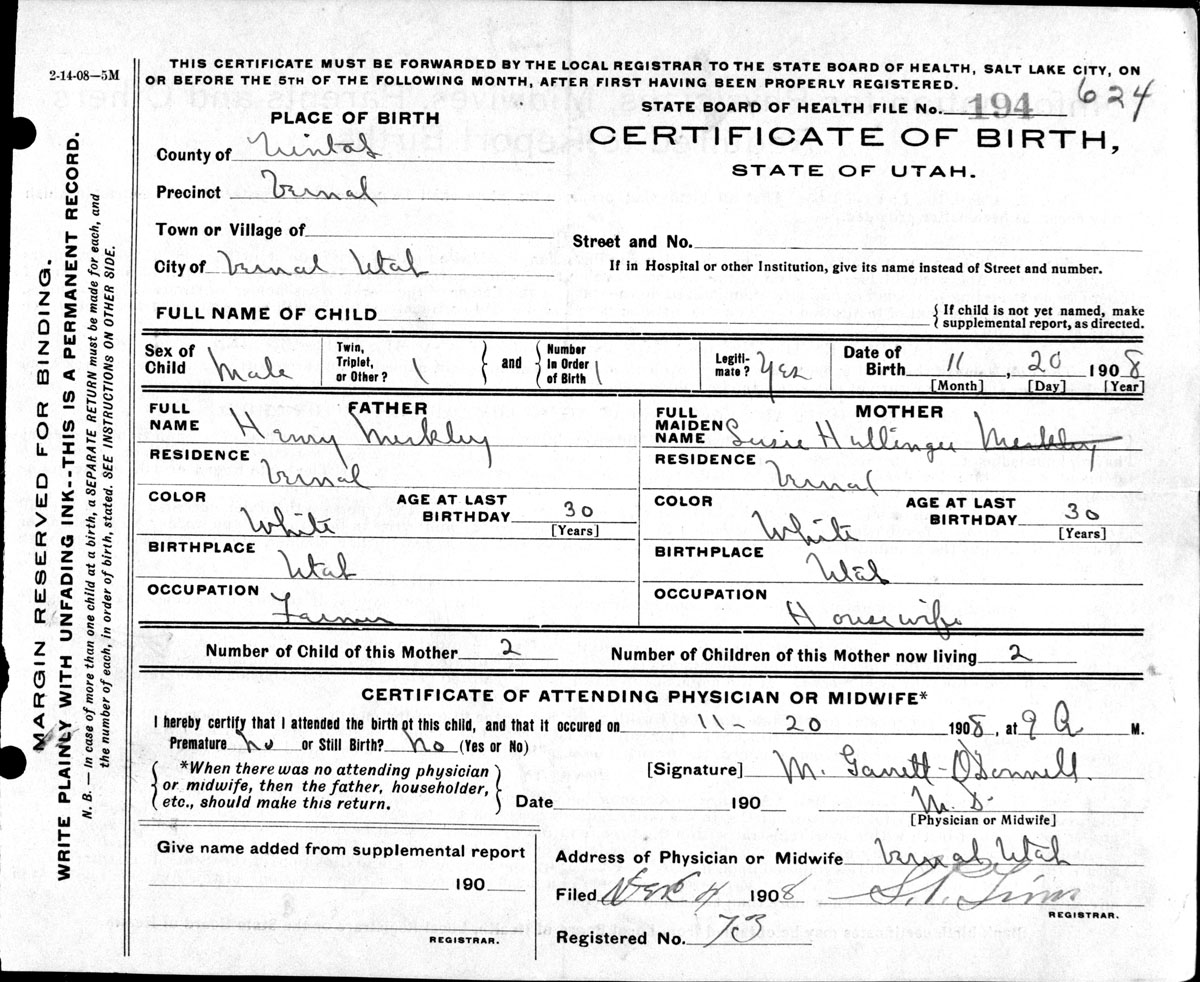 2-14-08—5M
THIS CERTIFICATE MUST BE FORWARDED BY THE LOCAL REGISTRAR TO THE STATE BOARD OF HEALTH, SALT LAKE CITY, ON
OR BEFORE THE 5TH OF THE FOLLOWING MONTH, AFTER FIRST HAVING BEEN PROPERLY REGISTERED.
STATE BOARD OF HEALTH FILE No. 194 624
CERTIFICATE OF BIRTH,
STATE OF UTAH.
PLACE OF BIRTH
County of Uintah
Precinct Vernal
Town or Village of
Street and No.
City of Vernal Utah
If in Hospital or other Institution, give its name instead of Street and number.
FULL NAME OF CHILD
{ If child is not yet named, make
supplemental report, as directed.
Sex of Child Male
Twin, Triplet, or Other? 1
and
Number In Order of Birth 1
Legiti-mate? Yes
Date of Birth 11, 20 1908
[Month] [Day] [Year]
FATHER
FULL NAME Henry Merkley
RESIDENCE
Vernal
COLOR
White
AGE AT LAST BIRTHDAY 30
[Years]
BIRTHPLACE
Utah
OCCUPATION
Farmer
MOTHER
FULL MAIDEN NAME Susie Hullinger Merkley
RESIDENCE
Vernal
COLOR
White
AGE AT LAST BIRTHDAY 30
[Years]
BIRTHPLACE
Utah
OCCUPATION
Housewife
Number of Child of this Mother 2
Number of Children of this Mother now living 2
CERTIFICATE OF ATTENDING PHYSICIAN OR MIDWIFE*
I hereby certify that I attended the birth of this child, and that it occured on 11-20 1908, at 9 A M.
Premature No or Still Birth? No (Yes or No)
*When there was no attending physician
or midwife, then the father, householder,
etc., should make this return.
[Signature] M. Garrett-O'Donnell.
Date 190
M. D.
[Physician or Midwife]
Give name added from supplemental report
190
REGISTRAR.
Address of Physician or Midwife Vernal Utah
Filed Dec 4 1908
REGISTRAR.
Registered No. 73
MARGIN RESERVED FOR BINDING.
WRITE PLAINLY WITH UNFADING INK--THIS IS A PERMANENT RECORD.
N. B. — In case of more than one child at a birth, a SEPARATE RETURN must be made for each, and
the number of each, in order of birth, stated. SEE INSTRUCTIONS ON OTHER SIDE.